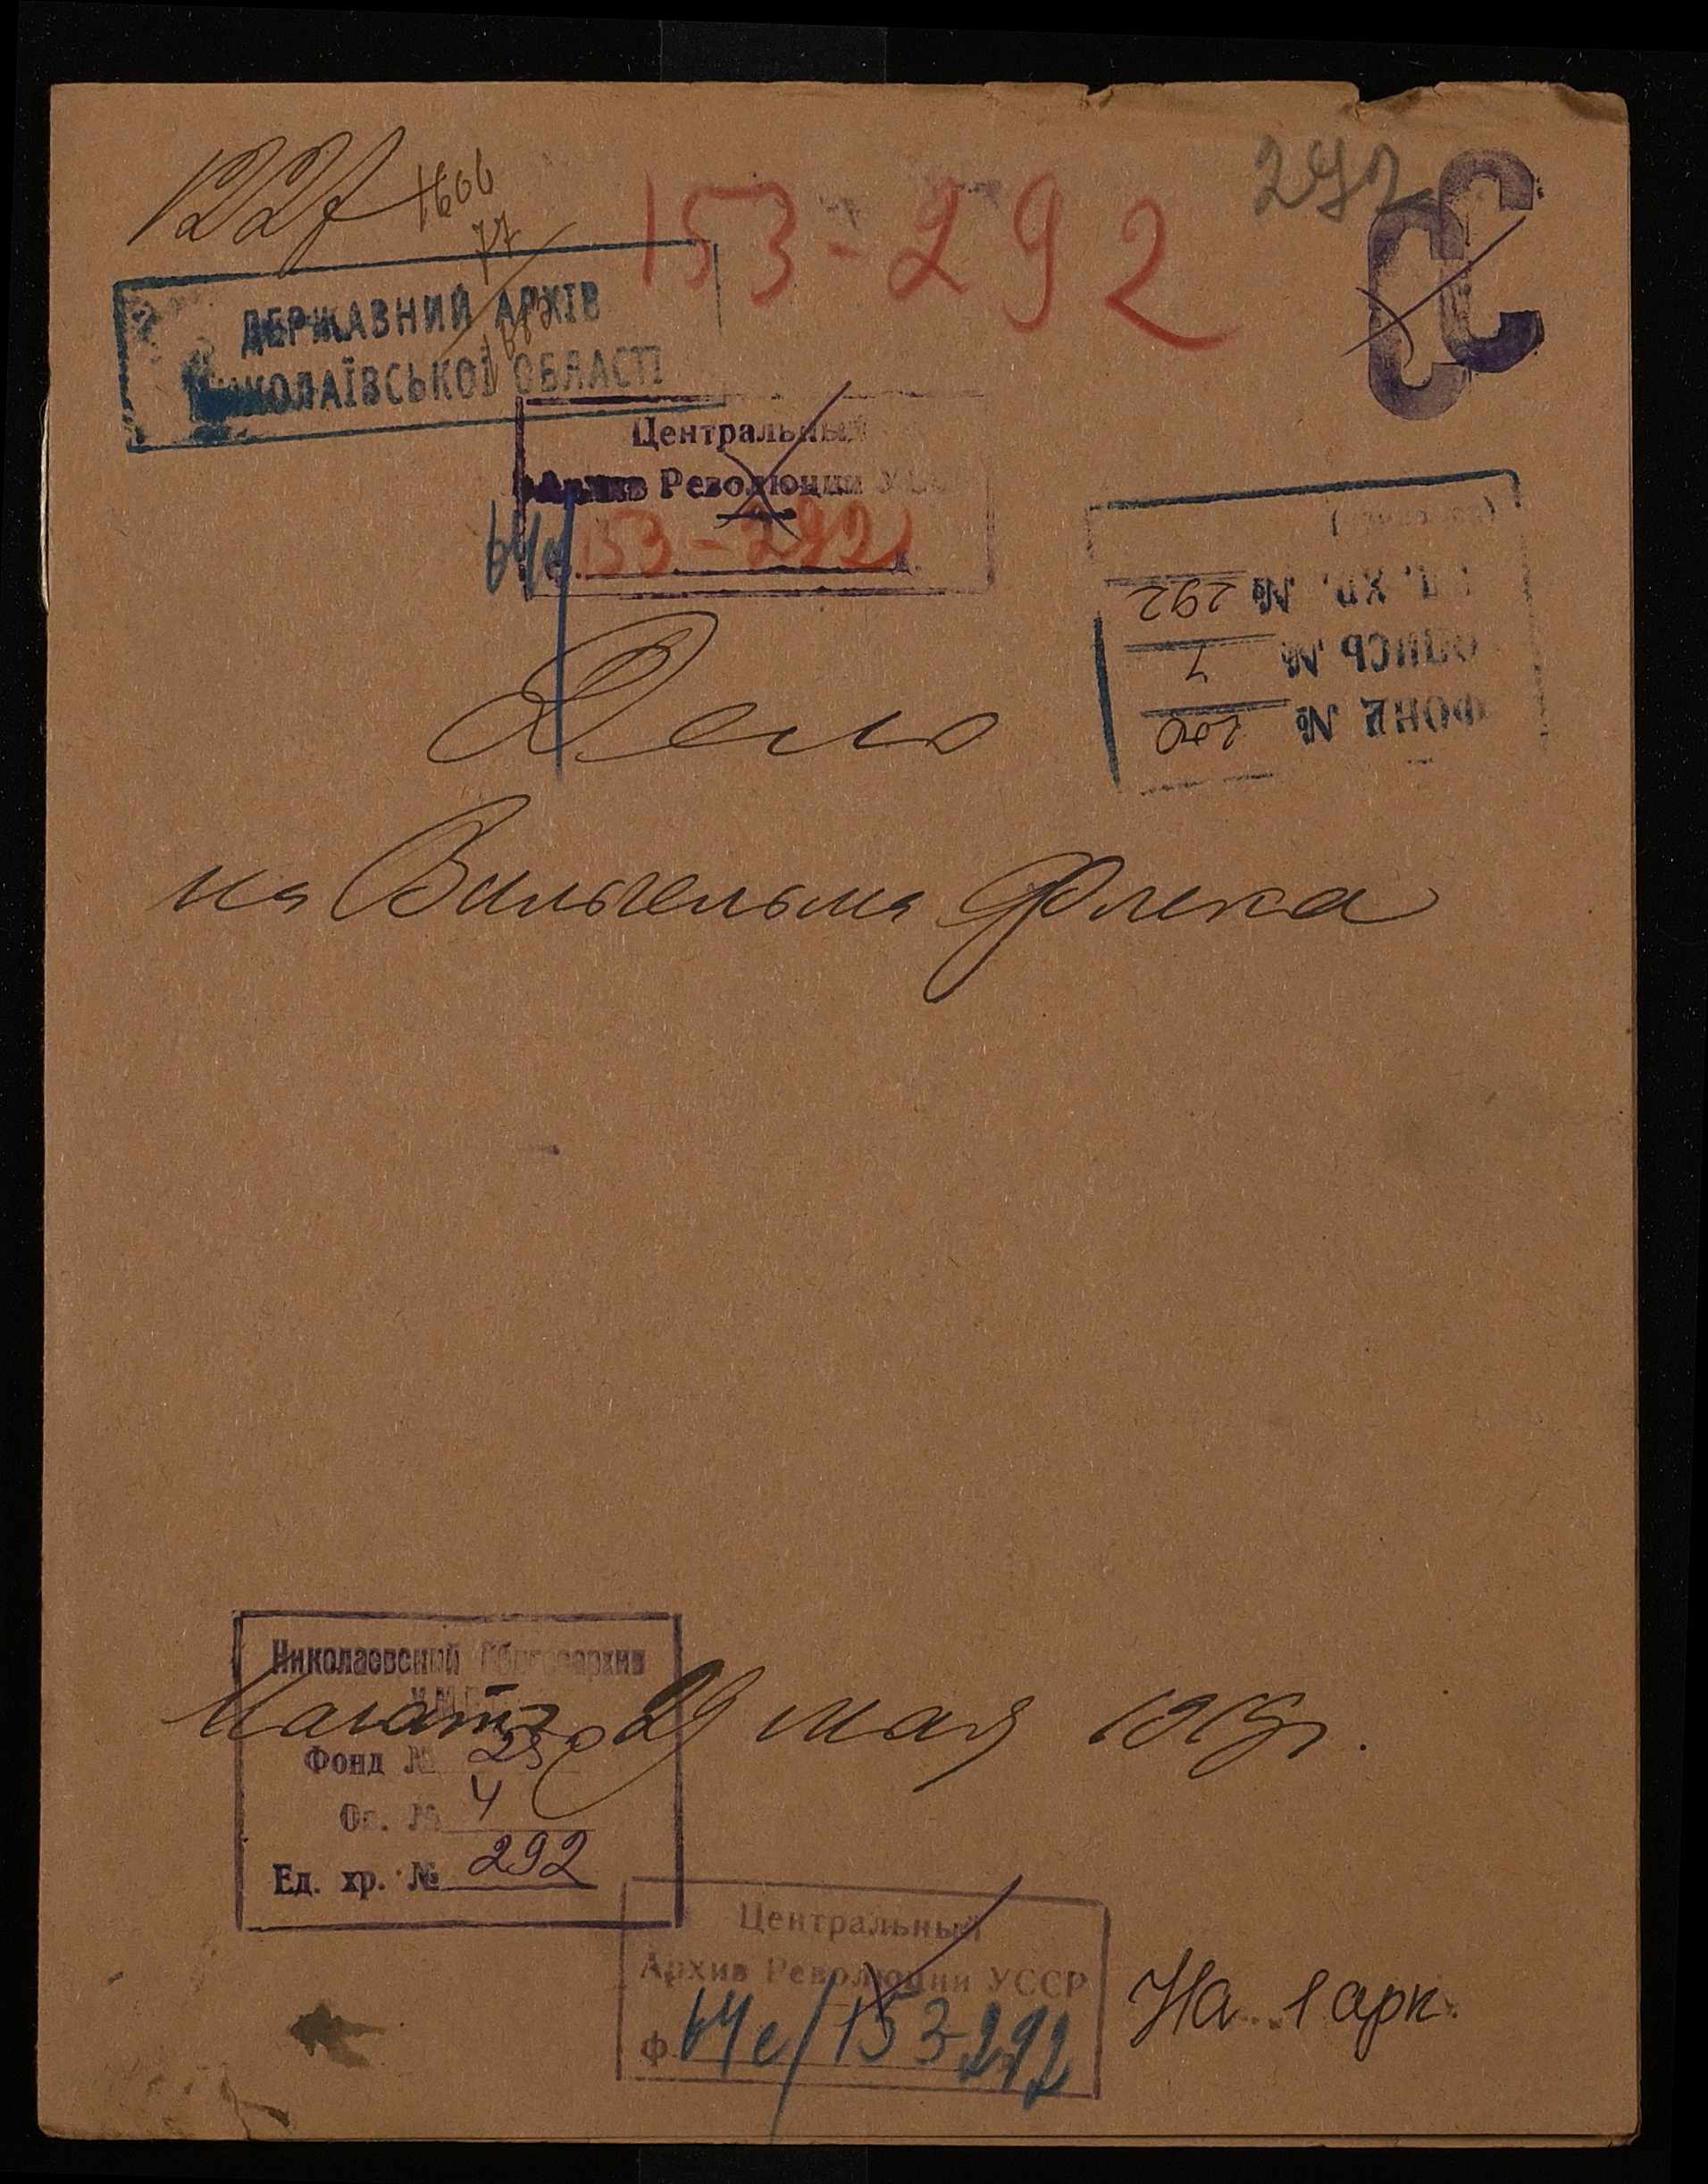 122
1606
77
153-292
292
СС
ДЕРЖАВНИЙ АРХІВ
МИКОЛАЇВСЬКОЇ ОБЛАСТІ
Центральный
Архив Революции УССР
64е/153-292
д.
Ед. хр. № 292
ОПИСЬ №
ФОНД №
Дело
на Вильгельма Флека
Николаевский Облгосархив
Начато 29 мая 19 г.
Фонд № 23
Оп. № 4
Ед. хр. № 292
Центральный
Архив Революции УССР
ф. 64е/153-292
На 1 арк.